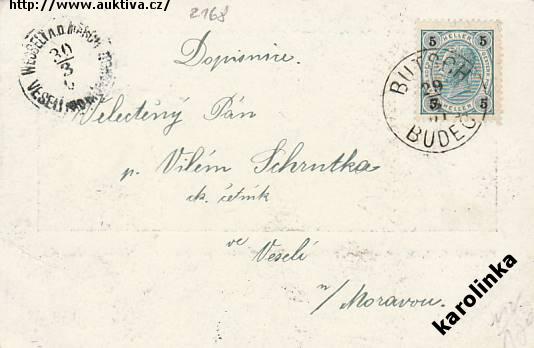 http://www.auktiva.cz/
2168
WESSELI A.D. MARCH
30
3
VESELÍ
Dopisnice.
5 HELLER 5
5 HELLER 5
BUDSCH
29
BUDEČ
Velectěný Pán
p. Vilém Schrutka
ck. četník
ve Veselí
n/Moravou.
karolinka